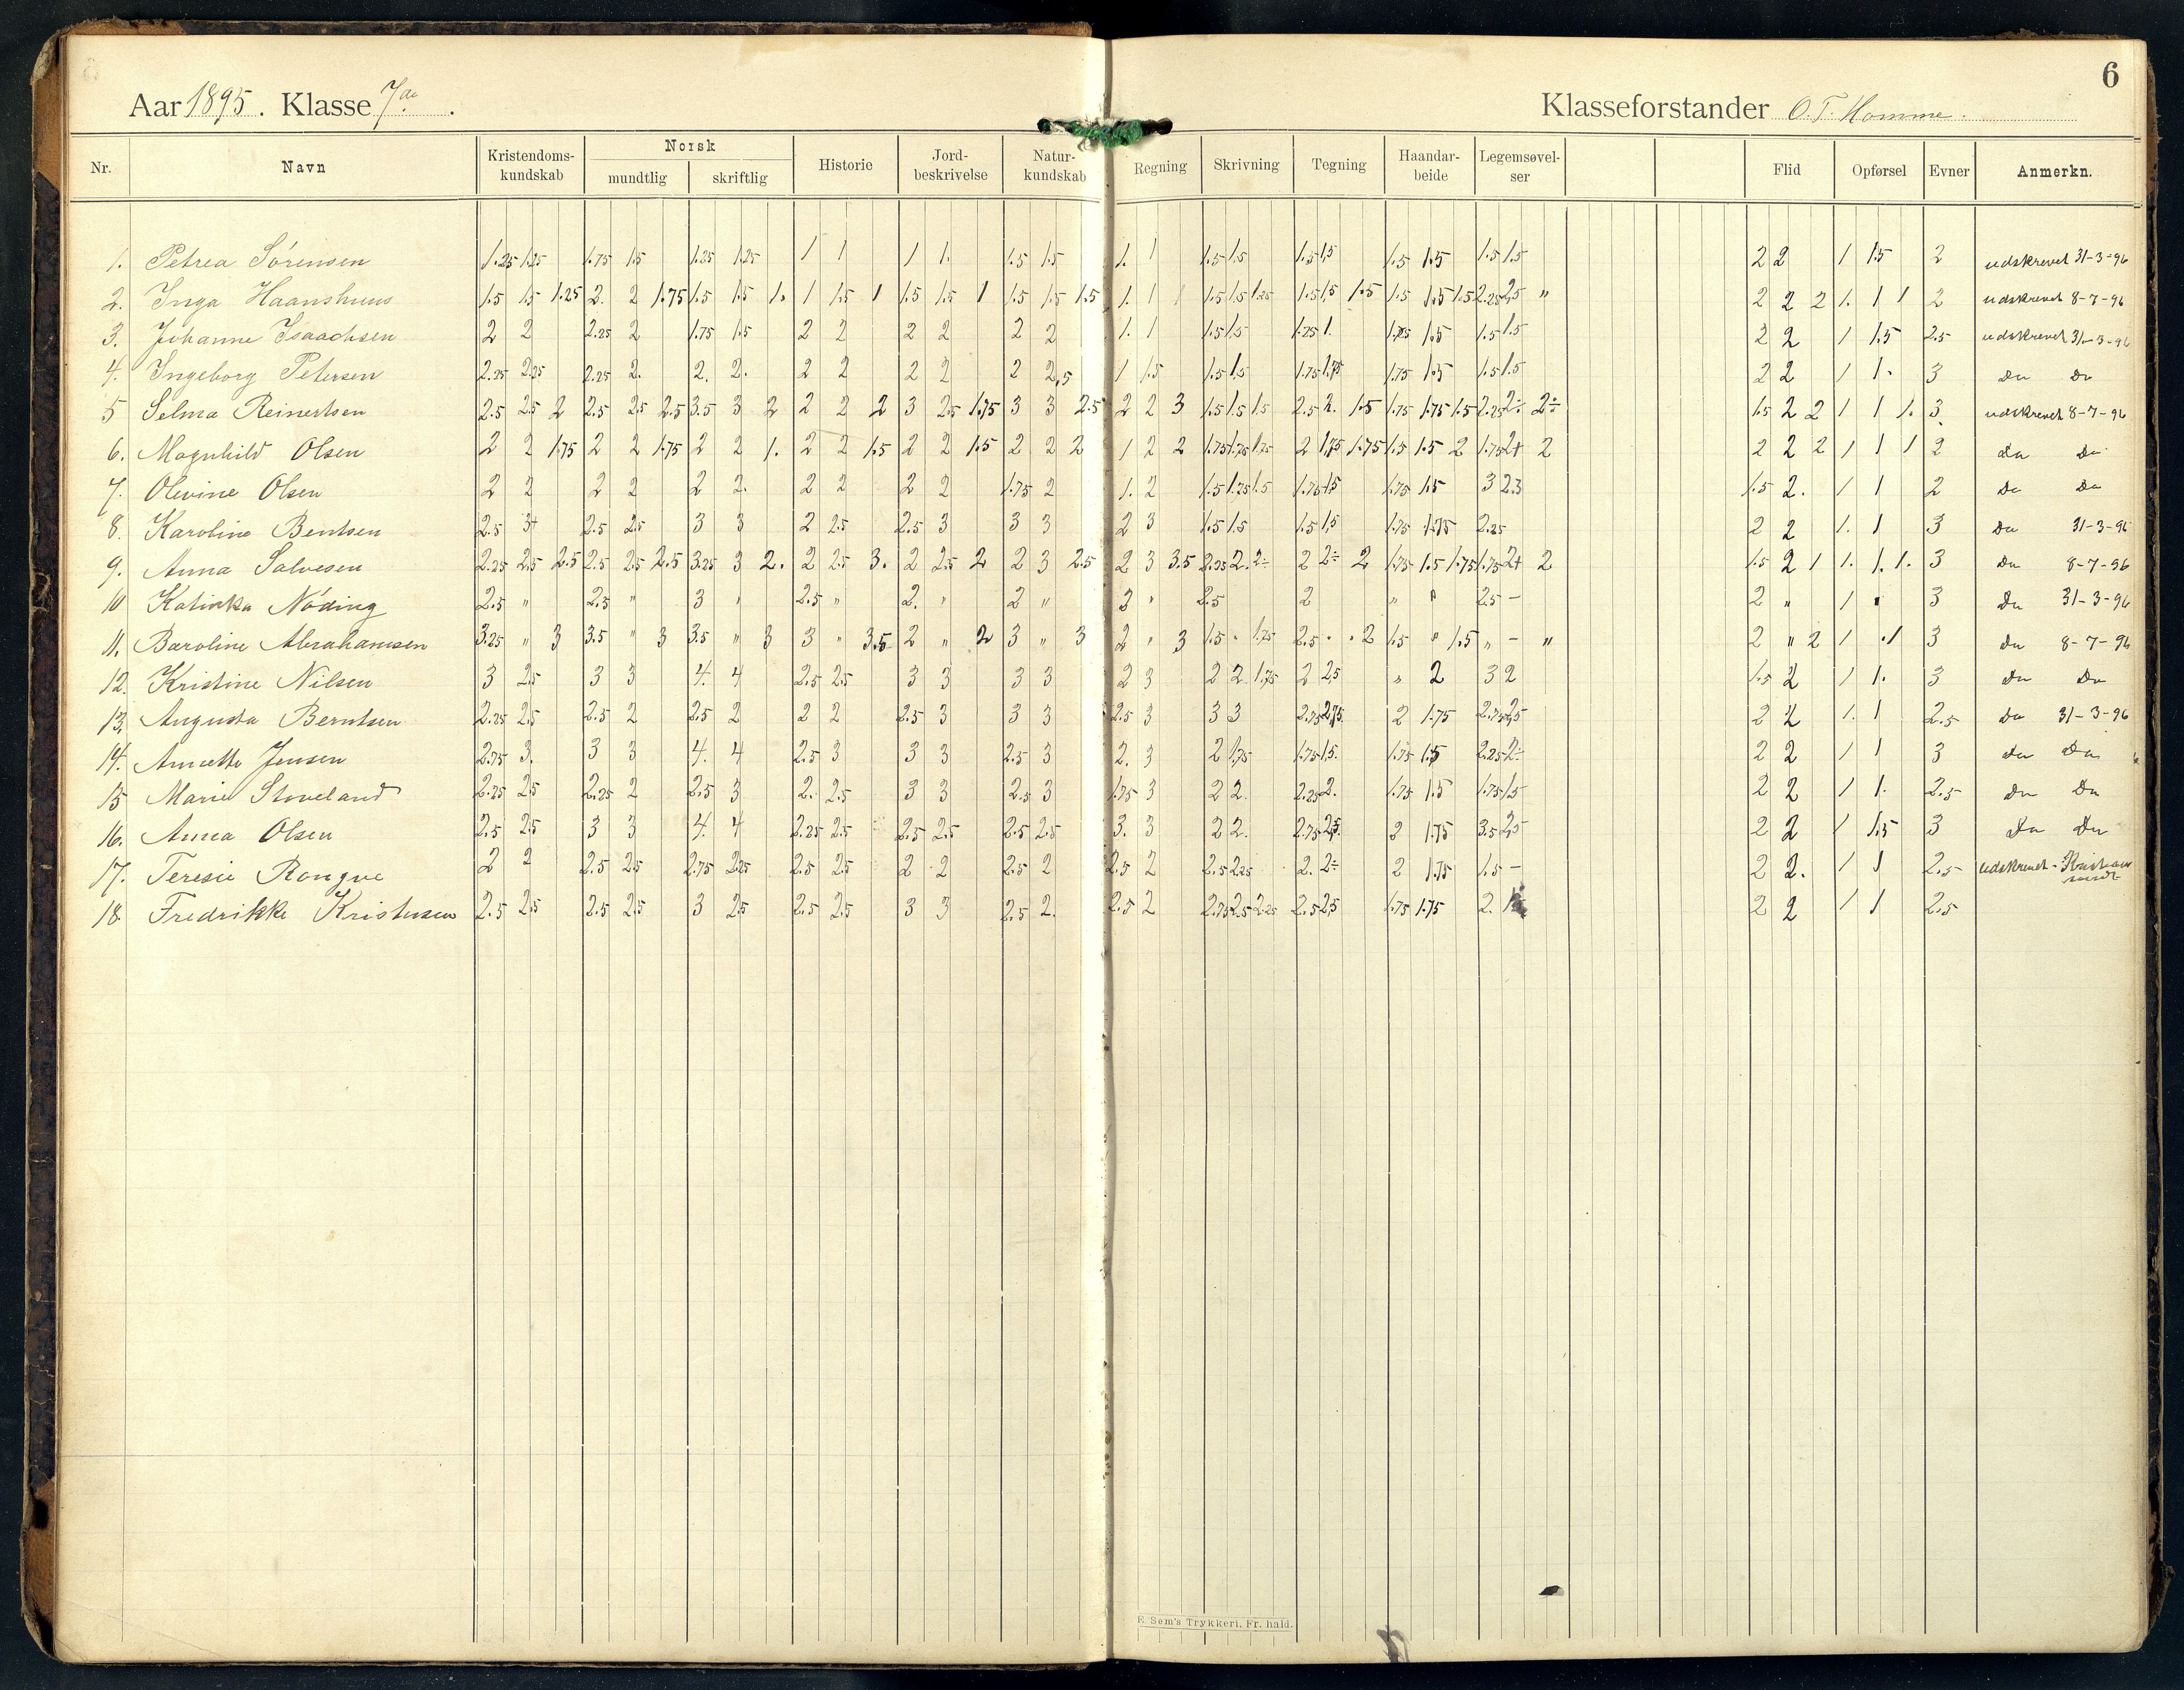 6
Aar 1895. Klasse 7de. Klasseforstander O. T. Homme.
Nr. Navn Kristendoms-kundskab Norsk mundtlig skriftlig Historie Jord-beskrivelse Natur-kundskab Regning Skrivning Tegning Haandar-beide Legemsøvel-ser Flid Opførsel Evner Anmerkn.
1. Petrea Sörensen 1.25 1.25 1.75 1.5 1.25 1.25 1 1 1 1. 1.5 1.5 1. 1 1.5 1.5 1.5 1.5 1.5 1.5 1.5 1.5 2 2 1 1.5 2 udskrevet 31-3-96
2. Inga Haanshuus 1.5 1.5 1.25 2. 2 1.75 1.5 1.5 1. 1 1.5 1 1.5 1.5 1 1.5 1.5 1.5 1. 1 1 1.5 1.5 1.25 1.5 1.5 1.5 1.5 1.5 1.5 2.25 2.5 " 2 2 2 1. 1 1 2 udskrevet 8-7-96
3. Johanne Isaachsen 2 2 2.25 2 1.75 1.5 2 2 2 2 2 2 1. 1 1.5 1.5 1.75 1. 1.75 1.5 1.5 1.5 2 2 1 1.5 2.5 udskrevet 31-3-96
4. Ingeborg Petersen 2.25 2.25 2.25 2. 2. 2. 2 2 2 2 2 2.5 1 1.5 1.5 1.5 1.75 1.75 1.75 1.5 1.5 1.5 2 2 1 1. 3 Do Do
5 Selma Reinertsen 2.5 2.5 2 2.5 2.5 2.5 3.5 3 2 2 2 2 3 2.5 1.75 3 3 2.5 2 2 3 1.5 1.5 1.5 2.5 2. 1.5 1.75 1.75 1.5 2.25 2÷ 2÷ 1.5 2 2 1 1 1. 3 udskrevet 8-7-96
6. Magnhild Olsen 2 2 1.75 2 2 1.75 2 2 1. 2 2 1.5 2 2 1.5 2 2 2 1 2 2 1.75 1.75 1.75 2 1.75 1.75 1.5 1.5 2 1.75 2+ 2 2 2 2 1 1 1 2 Do Do
7. Olevine Olsen 2 2 2 2 2 2. 2 2 2 2 1.75 2 1. 2 1.5 1.75 1.5 1.75 1.5 1.75 1.5 3 2.3 1.5 2. 1 1 2 Do Do
8. Karoline Bentsen 2.5 3+ 2.5 2.5 3 3 2 2.5 2.5 3 3 3 2 3 1.5 1.5 1.5 1.5 1.75 1.75 2.25 2 2 1. 1 3 Do 31-3-96
9. Anna Salvesen 2.25 2.5 2.5 2.5 2.5 2.5 3.25 3 2. 2 2.5 3. 2 2.5 2 2 3 2.5 2 3 3.5 2.25 2. 2÷ 2 2÷ 2 1.75 1.5 1.75 1.75 2+ 2 1.5 2 1 1. 1. 1. 3 Do 8-7-96
10 Katinka Nöding 2.5 " 2.5 " 3 " 2.5 " 2. " 2 " 3 " 2.5 2 " " 2.5 - 2 " 1 " 3 Do 31-3-96
11. Baroline Abrahamsen 3.25 " 3 3.5 " 3 3.5 " 3 3 " 3.5 2 " 2 3 " 3 2 " 3 1.5 " 1.75 2.5 " 2 1.5 " 1.5 " - " 2 " 2 1 " 1 3 Do 8-7-96
12. Kristine Nilsen 3 2.5 3 3 4. 4 2.5 2.5 3 3 3 3 2 3 2 2 1.75 2 2.5 " 2 3 2 1.5 2 1 1. 3 Do Do
13. Augusta Berntsen 2.25 2.5 2.5 2 2.5 2 2 2 2.5 3 3 3 2.5 3 3 3 2.75 2.75 2 1.75 2.75 2.5 2 2 1. 1 2.5 Do 31-3-96
14. Annette Jensen 2.75 3. 3 3 4. 4 2.5 3 3 3 2.5 3 2. 3 2 1.75 1.75 1.5. 1.75 1.5 2.25 2÷ 2 2 1 1 3 Do Do
15 Marie Stoveland 2.25 2.5 2.25 2 2.5 3 2. 2.5 3 3 2.5 3 1.75 3 2 2. 2.25 2. 1.75 1.5 1.75 1.5 2 2 1 1. 2.5 Do Do
16. Anna Olsen 2.5 2.5 3 3 4. 4 2.25 2.5 2.5 2.5 2.5 2.5 3. 3 2 2. 2.75 2.5. 2 1.75 3.5 2.5 2 2 1 1.5 3 Do Do
17. Teresie Rongve 2 2 2.5 2.5 2.75 2.25 2.5 2.5 2 2 2.5 2 2.5 2 2.5 2.25 2. 2÷ 2 1.75 1.5 - 2 2. 1 1 2.5 udskrevet - Kristiansund
18. Fredrikke Kristensen 2.5 2.5 2.5 2.5 3 2.5 2.5 2.5 3 3 2.5 2. 2.5 2 2.75 2.5 2.25 2.5 2.5 1.75 1.75 2. 2 2 1 1 2.5
E. Sem's Trykkeri, Fr. hald.